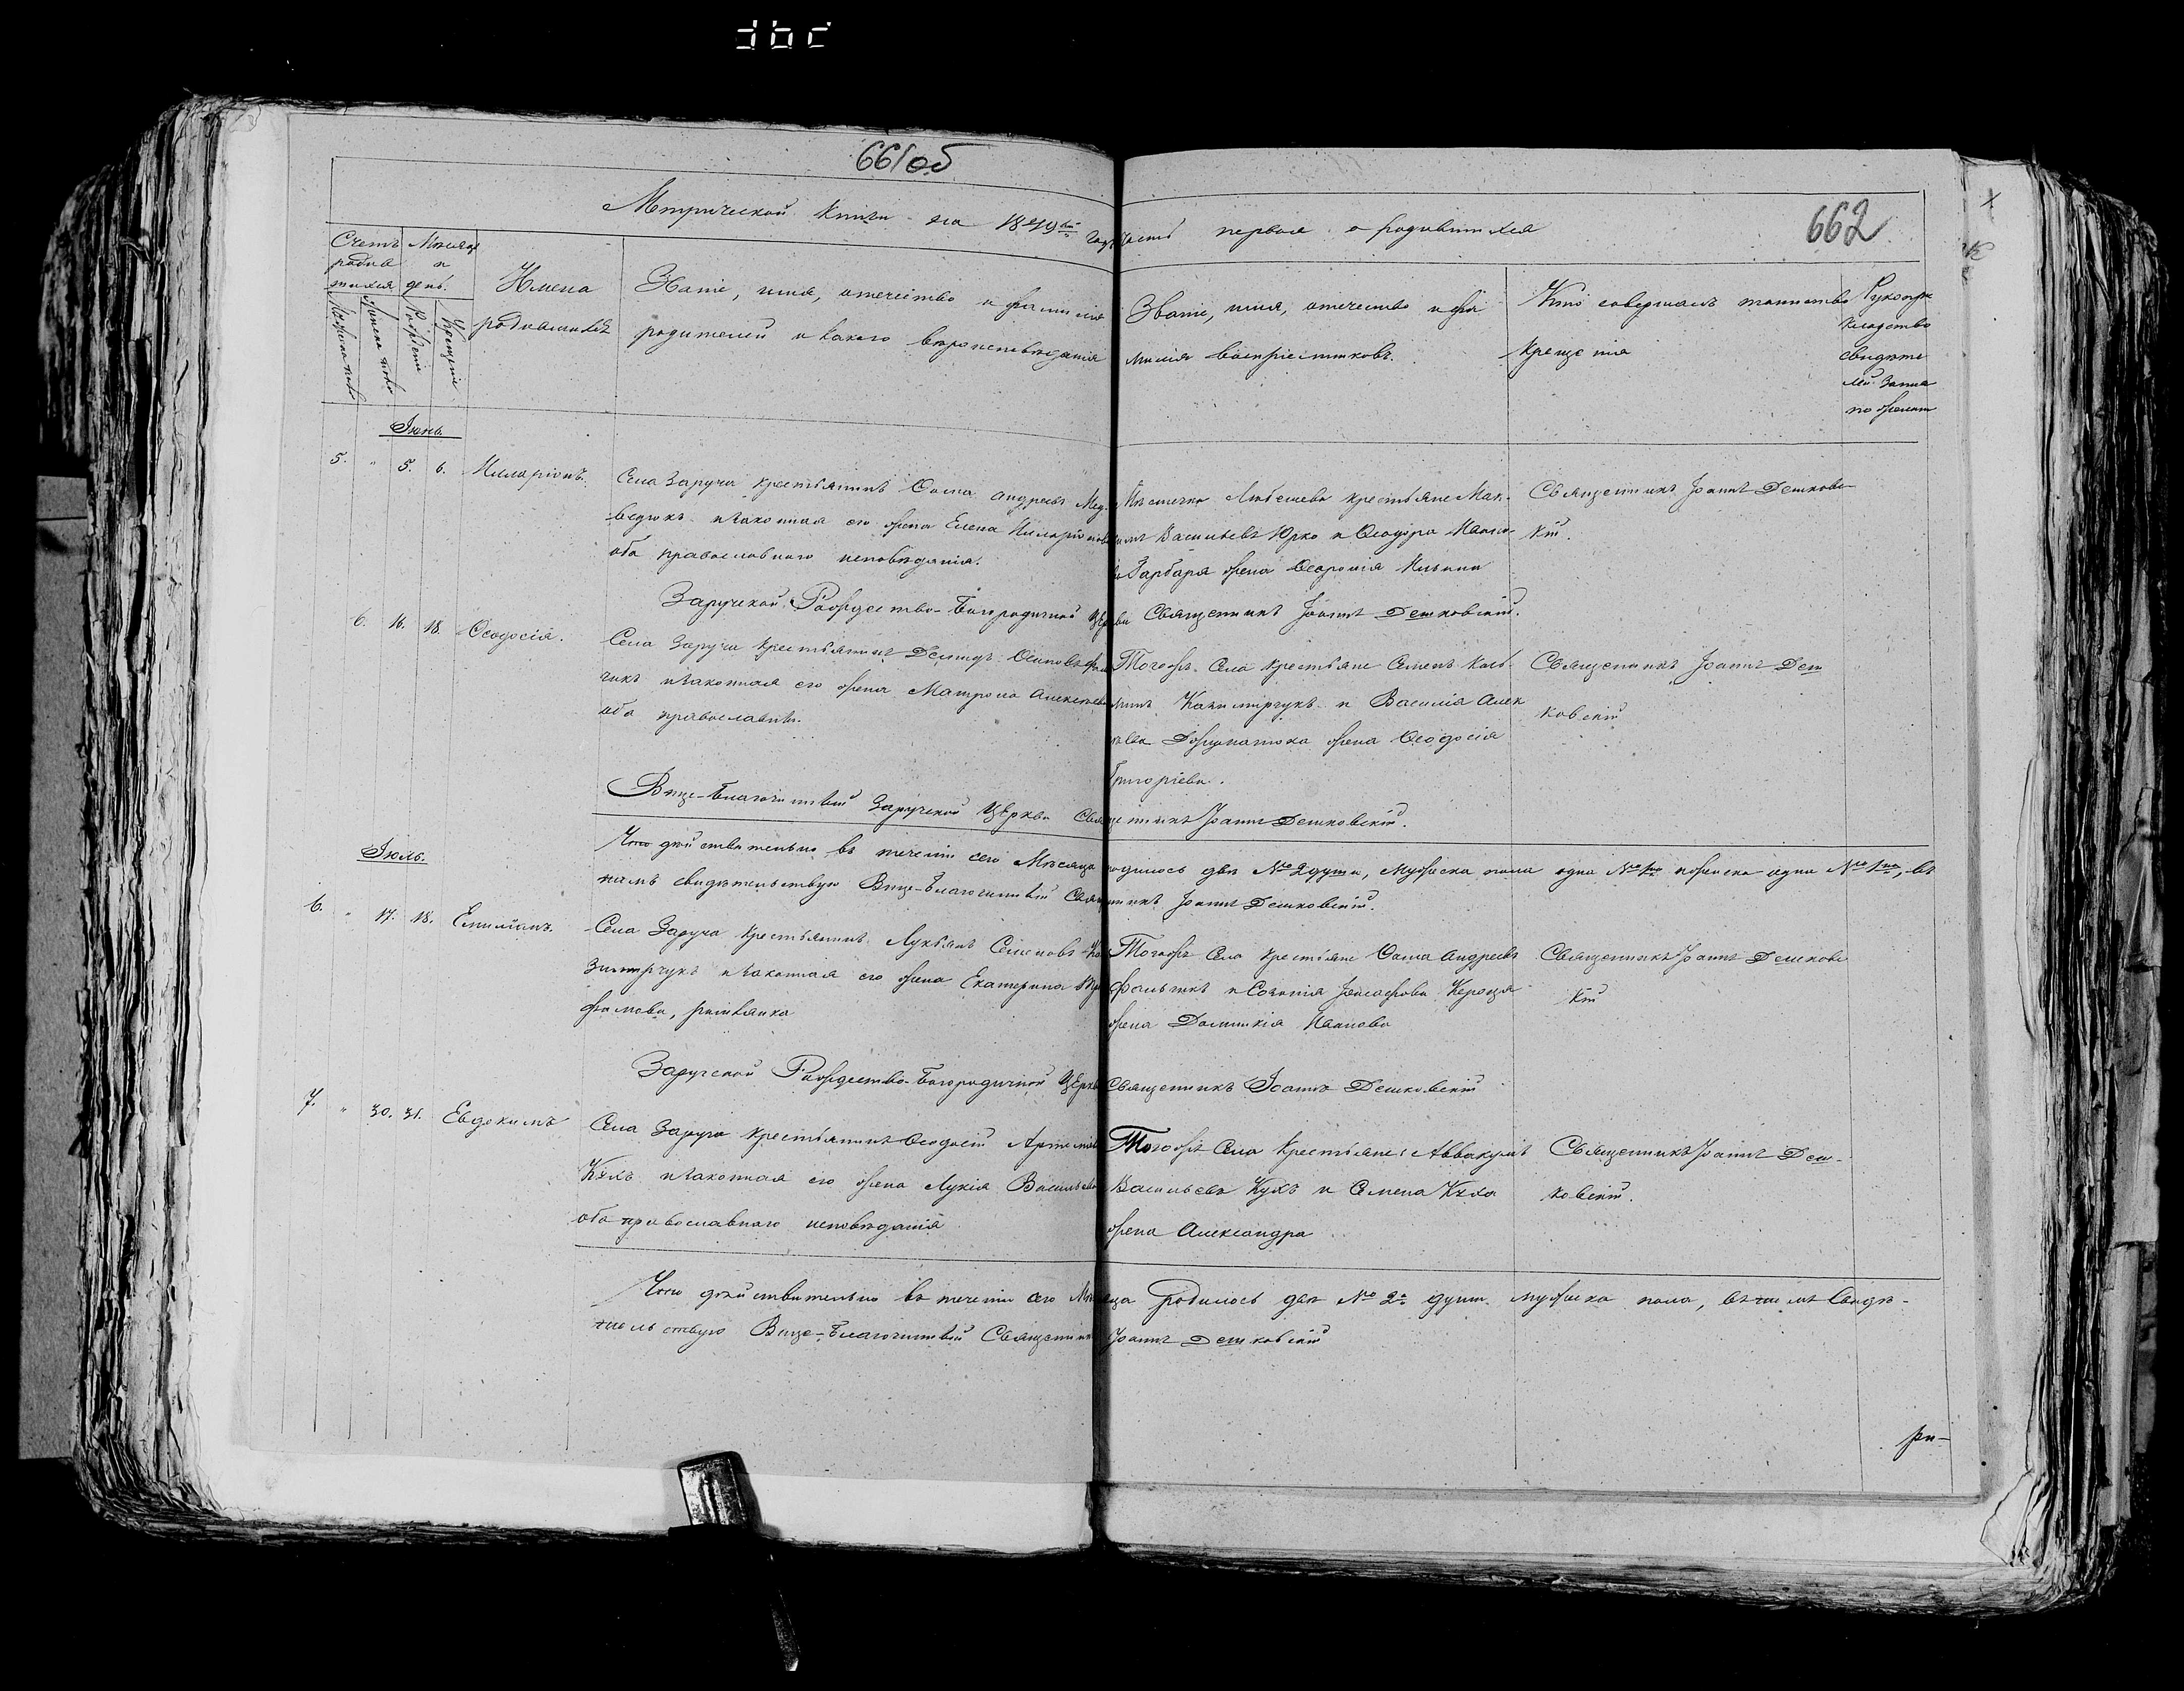 661об
662
Метрической Книги на 1849й годъ часть первая о родившихся
Счетъ родившихся
Мужеска пола
Женска пола
Мѣсяцъ и день.
Рожденія
Крещенія
Имена
родившихъ
Званіе, имя, отечество и фамилія
родителей и какого вѣроисповѣданія
Званіе, имя, отечество и фа
милія воспріемниковъ.
Кто совершалъ таинство
крещенія
Рукопри
кладство
свидѣте
лей запи
Іюнь.
5. " 5. 6. Илларіонъ.
Села Заруча крестьянинъ Ѳома Андреевъ Мед-
ведюкъ и законная его жена Елена Илларіонова
оба православнаго исповѣданія.
Мѣстечка Любешева крестьяне Мак-
симъ Васильевъ Юрко и Ѳеодора
жена Ѳевронія
Священникъ Іоаннъ Дешковс-
кій.
Заручской Рождество-Богородичной Церкви Священникъ Іоаннъ Дешковскій.
6. 16. 18. Ѳеодосія.
Села Заруча крестьянинъ Демидъ Осиповъ
чикъ и законная его жена Матрона Алексеева
оба православніи.
Тогожъ Села крестьяне Семенъ
Казимирчукъ и Василія Алек
жена Ѳеодосія
Григоріева.
Священникъ Іоаннъ Деш
ковскій
Вице-Благочинный Заручской Церкви Священникъ Іоаннъ Дешковскій.
Что дѣйствительно въ теченіи сего Мѣсяца родилось двѣ № 2 души, мужеска пола одна № 1 и женска одна № 1, въ
чемъ свидѣтельствую Вице-Благочинный Священникъ Іоаннъ Дешковскій.
Іюль.
6. " 17. 18. Емиліанъ.
Села Заруча крестьянинъ Лукьянъ Семеновъ Ка
зимирчукъ и законная его жена Екатерина
фимова, римлянка
Тогожъ Села крестьяне Ѳома Андреевъ
жена Домникія Иванова
Священникъ Іоаннъ Дешковс
кій
Заручской Рождество-Богородичной Церкви Священникъ Іоаннъ Дешковскій
7. " 30. 31. Евдокимъ
Села Заруча крестьянинъ Ѳеодосій Артемовъ
Кухъ и законная его жена Лукія Васильева
оба православнаго исповѣданія
Тогожъ Села крестьяне: Аввакумъ
Васильевъ Кухъ и Семена Куха
жена Александра
Священникъ Іоаннъ Деш-
ковскій.
Что дѣйствительно въ теченіи сего Мѣсяца родилось двѣ № 2 души мужеска пола, въ чемъ свидѣ-
тельствую Вице-Благочинный Священникъ Іоаннъ Дешковскій
ри-